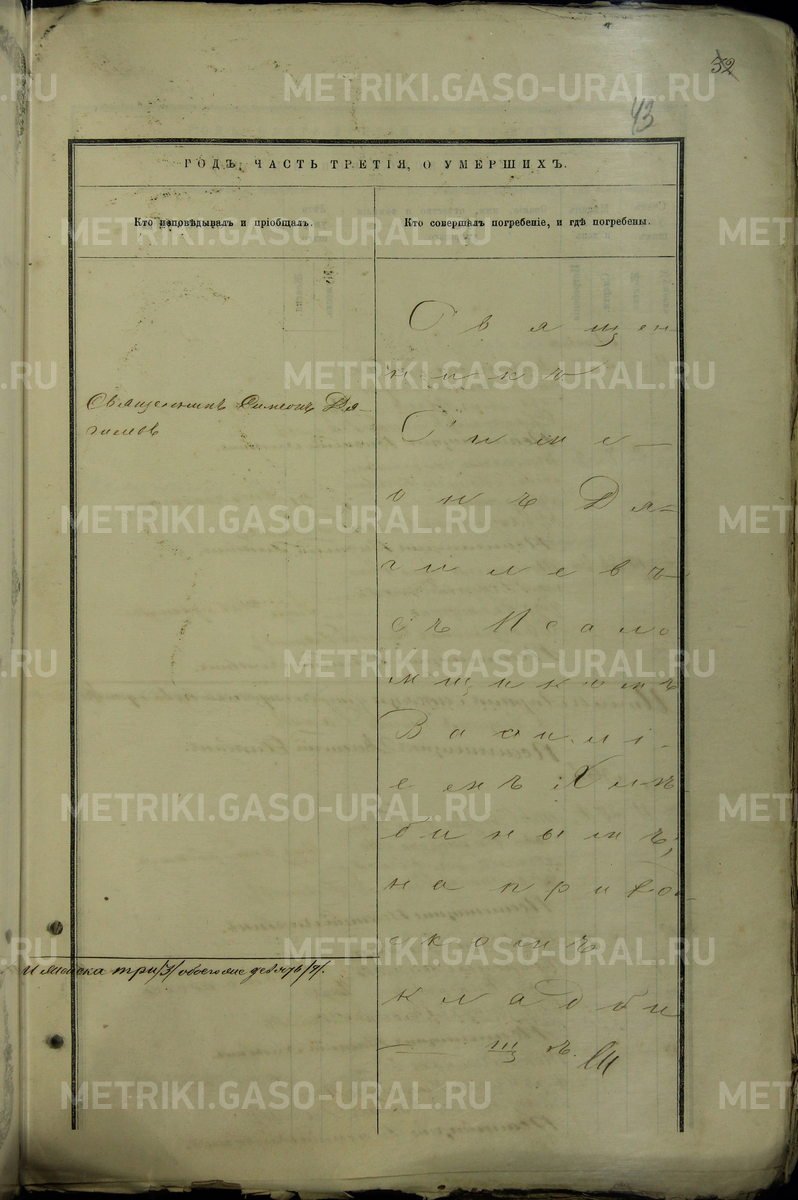 METRIKI.GASO-URAL.RU
52
43
ГОДЪ, ЧАСТЬ ТРЕТІЯ, О УМЕРШИХЪ.
Кто исповѣдывалъ и пріобщалъ.
Кто совершалъ погребеніе, и гдѣ погребены.
Священникъ Симеонъ Дя-
гилев
Священ
никъ
Симе-
онъ Дя-
гилевъ
съ Псало
мщикомъ
Василі-
емъ Хлѣ-
бинымъ,
на приход
скомъ
кладби
— щѣ.
и женска три /3/ обоего же девять /9/.